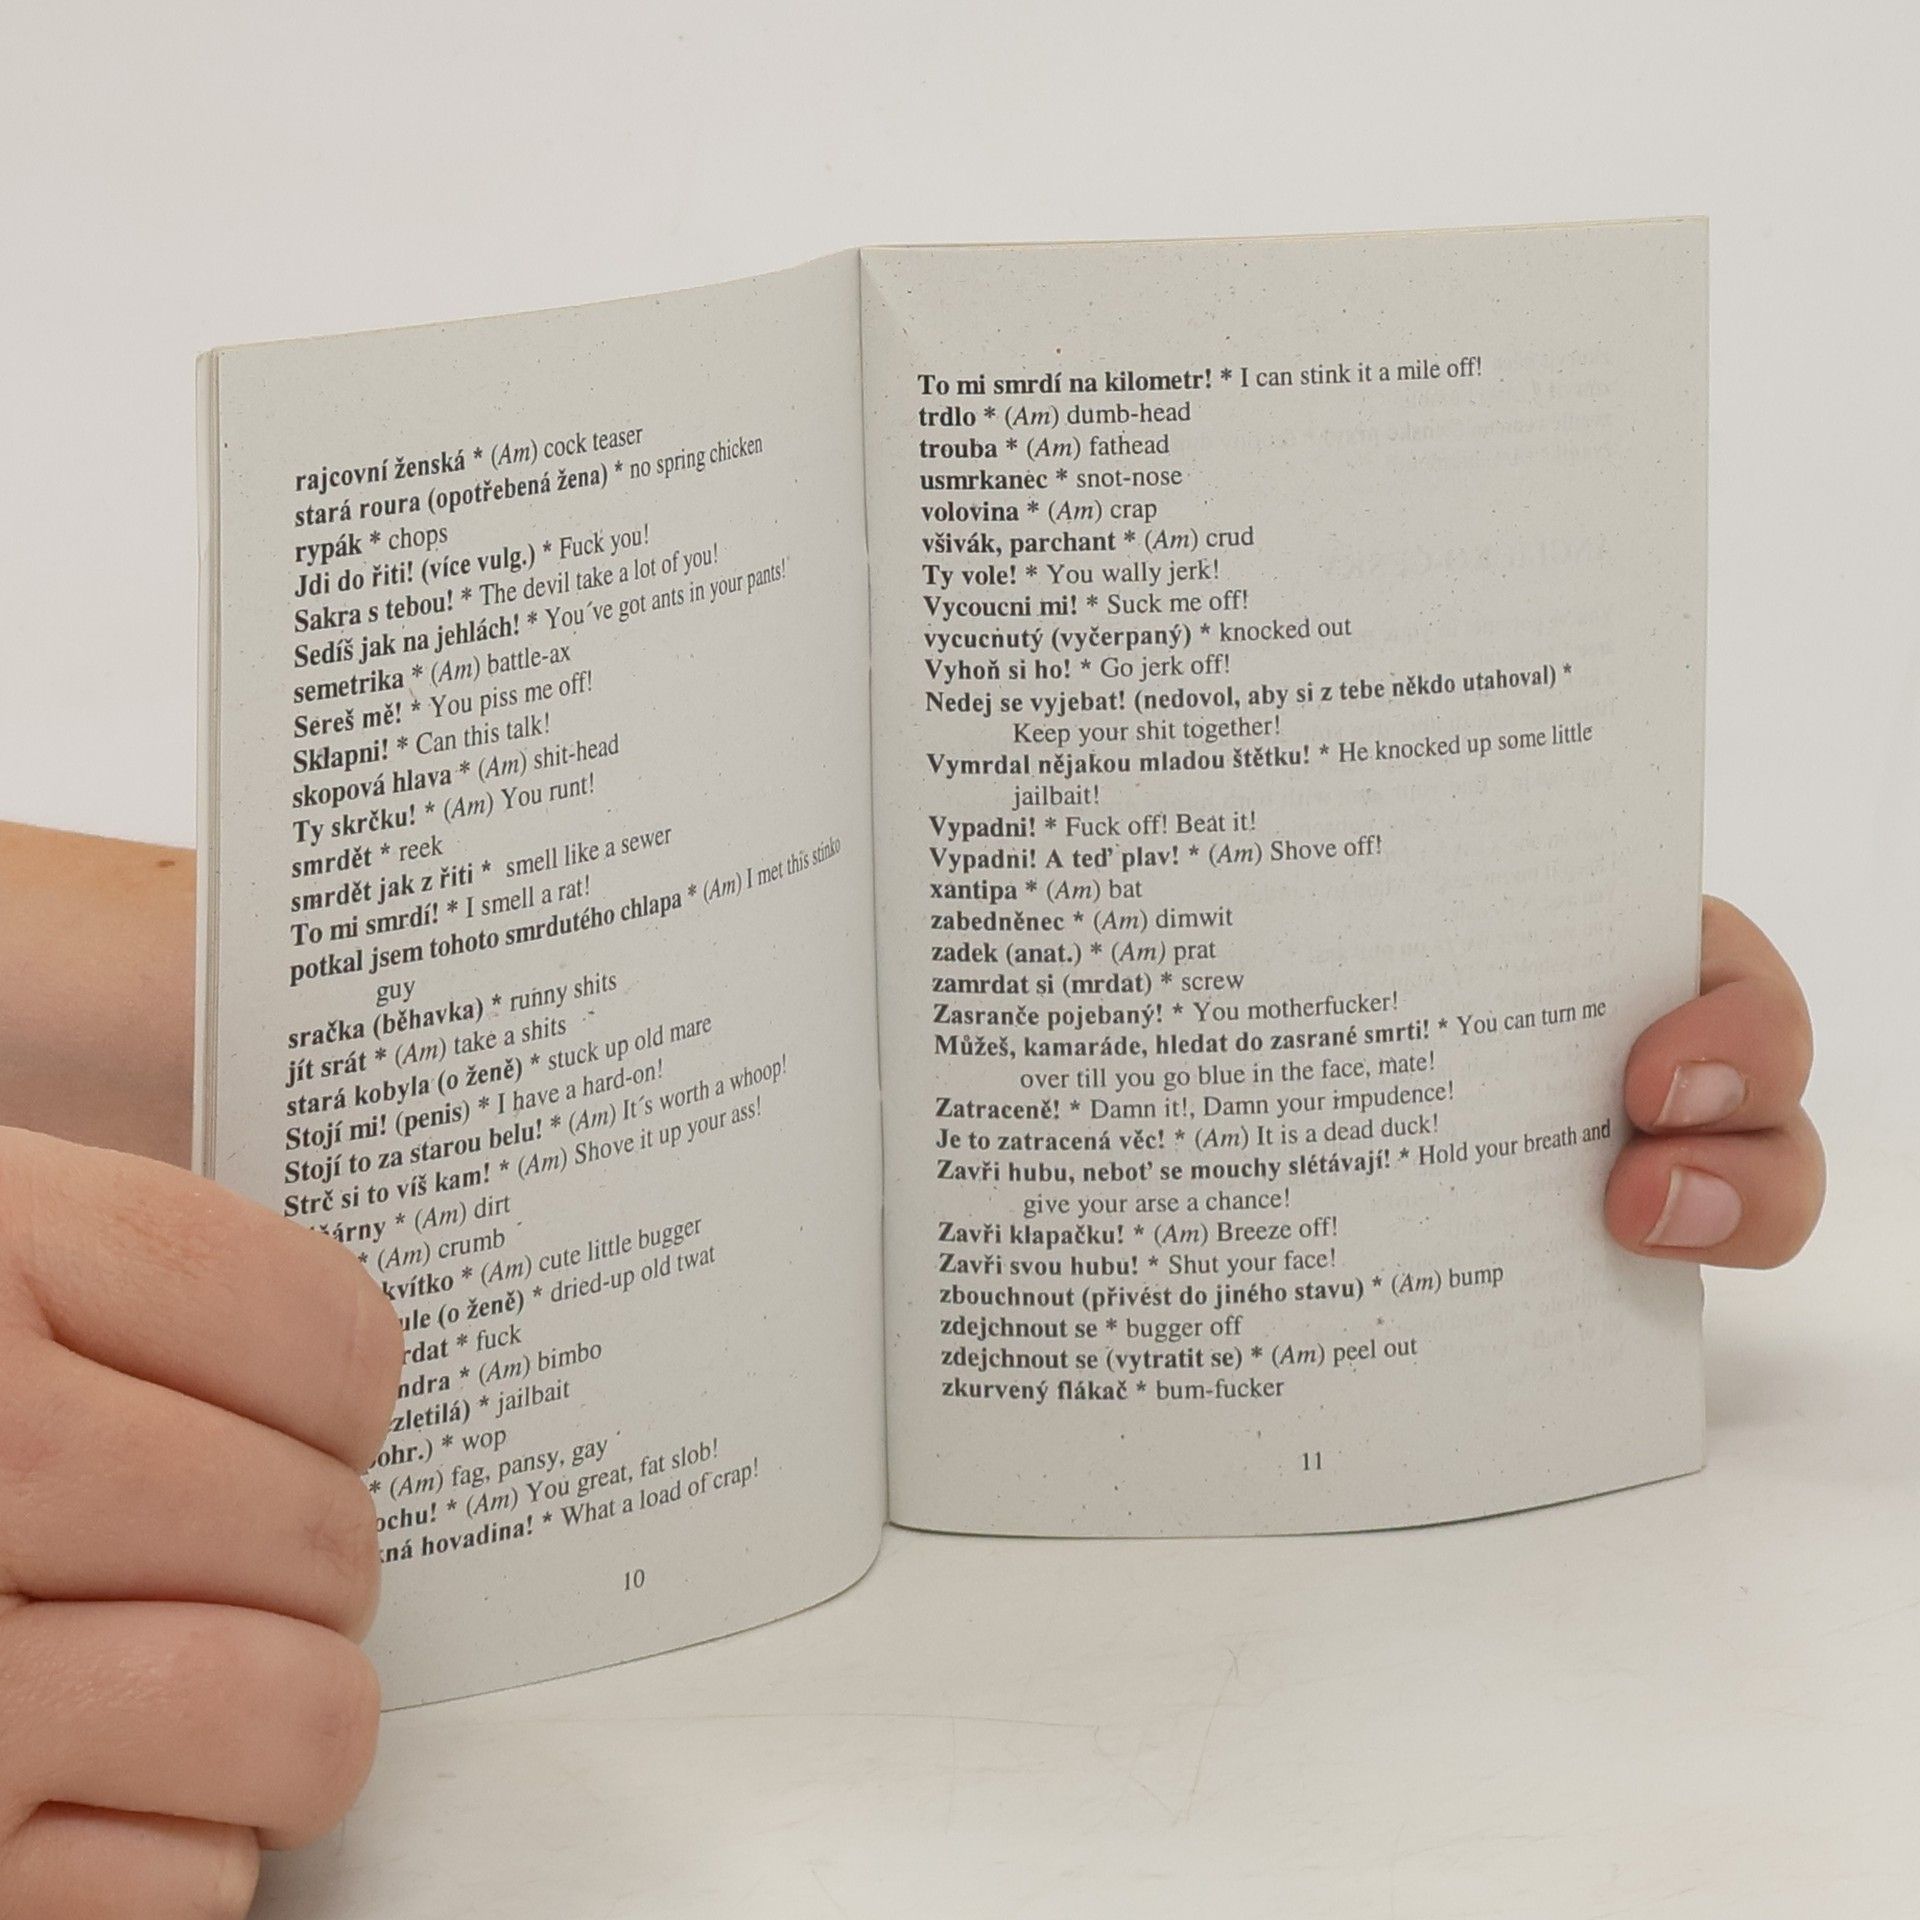 rajcovní ženská * (Am) cock teaser
stará roura (opotřebená žena) * no spring chicken
rypák * chops
Jdi do řiti! (více vulg.) * Fuck you!
Sakra s tebou! * The devil take a lot of you!
Sedíš jak na jehlách! * You´ve got ants in your pants!
semetrika * (Am) battle-ax
Sereš mě! * You piss me off!
Sklapni! * Can this talk!
skopová hlava * (Am) shit-head
Ty skrčku! * (Am) You runt!
smrdět * reek
smrdět jak z řiti * smell like a sewer
To mi smrdí! * I smell a rat!
potkal jsem tohoto smrdutého chlapa * (Am) I met this stinko
guy
sračka (běhavka) * runny shits
jít srát * (Am) take a shits
stará kobyla (o ženě) * stuck up old mare
Stojí mi! (penis) * I have a hard-on!
Stojí to za starou belu! * (Am) It´s worth a whoop!
Strč si to víš kam! * (Am) Shove it up your ass!
* (Am) dirt
* (Am) crumb
kvítko * (Am) cute little bugger
(o ženě) * dried-up old twat
* fuck
* (Am) bimbo
* jailbait
* wop
* (Am) fag, pansy, gay
* (Am) You great, fat slob!
hovadina! * What a load of crap!
10
To mi smrdí na kilometr! * I can stink it a mile off!
trdlo * (Am) dumb-head
trouba * (Am) fathead
usmrkanec * snot-nose
volovina * (Am) crap
všivák, parchant * (Am) crud
Ty vole! * You wally jerk!
Vycoucni mi! * Suck me off!
vycucnutý (vyčerpaný) * knocked out
Vyhoň si ho! * Go jerk off!
Nedej se vyjebat! (nedovol, aby si z tebe někdo utahoval) *
Keep your shit together!
Vymrdal nějakou mladou štětku! * He knocked up some little
jailbait!
Vypadni! * Fuck off! Beat it!
Vypadni! A teď plav! * (Am) Shove off!
xantipa * (Am) bat
zabedněnec * (Am) dimwit
zadek (anat.) * (Am) prat
zamrdat si (mrdat) * screw
Zasranče pojebaný! * You motherfucker!
Můžeš, kamaráde, hledat do zasrané smrti! * You can turn me
over till you go blue in the face, mate!
Zatraceně! * Damn it!, Damn your impudence!
Je to zatracená věc! * (Am) It is a dead duck!
Zavři hubu, neboť se mouchy slétávají! * Hold your breath and
give your arse a chance!
Zavři klapačku! * (Am) Breeze off!
Zavři svou hubu! * Shut your face!
zbouchnout (přivést do jiného stavu) * (Am) bump
zdejchnout se * bugger off
zdejchnout se (vytratit se) * (Am) peel out
zkurvený flákač * bum-fucker
11